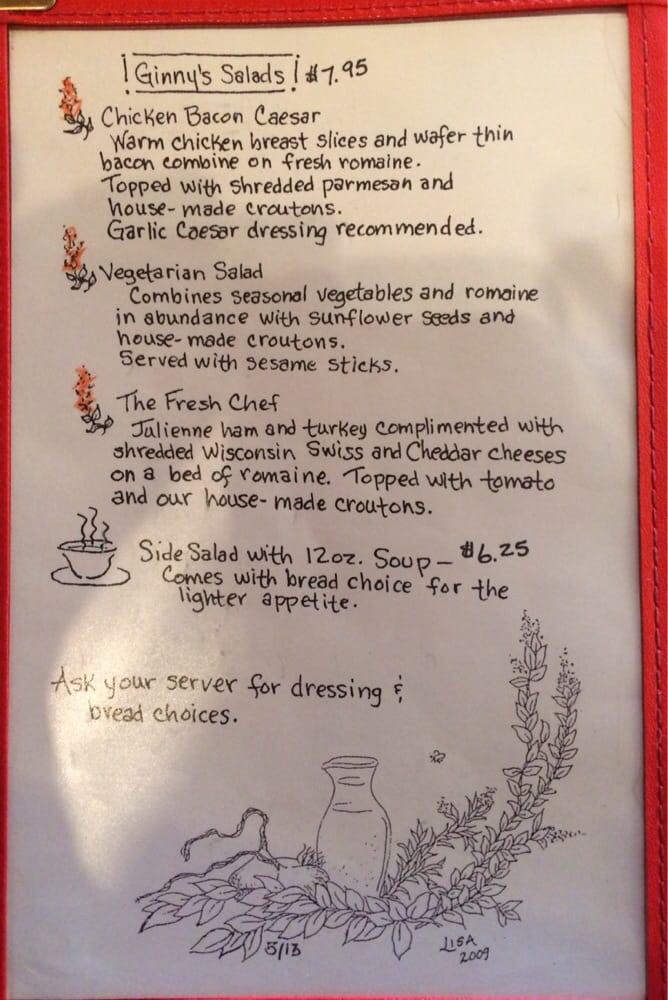 ! Ginny's Salads ! $7.95
Chicken Bacon Caesar
Warm chicken breast slices and wafer thin
bacon combine on fresh romaine.
Topped with shredded parmesan and
house-made croutons.
Garlic Caesar dressing recommended.
Vegetarian Salad
Combines seasonal vegetables and romaine
in abundance with sunflower seeds and
house-made croutons.
Served with sesame sticks.
The Fresh Chef
Julienne ham and turkey complimented with
shredded Wisconsin Swiss and Cheddar cheeses
on a bed of romaine. Topped with tomato
and our house-made croutons.
Side Salad with 12oz. Soup – $6.25
Comes with bread choice for the
lighter appetite.
Ask your server for dressing &
bread choices.
3/13
LISA
2009